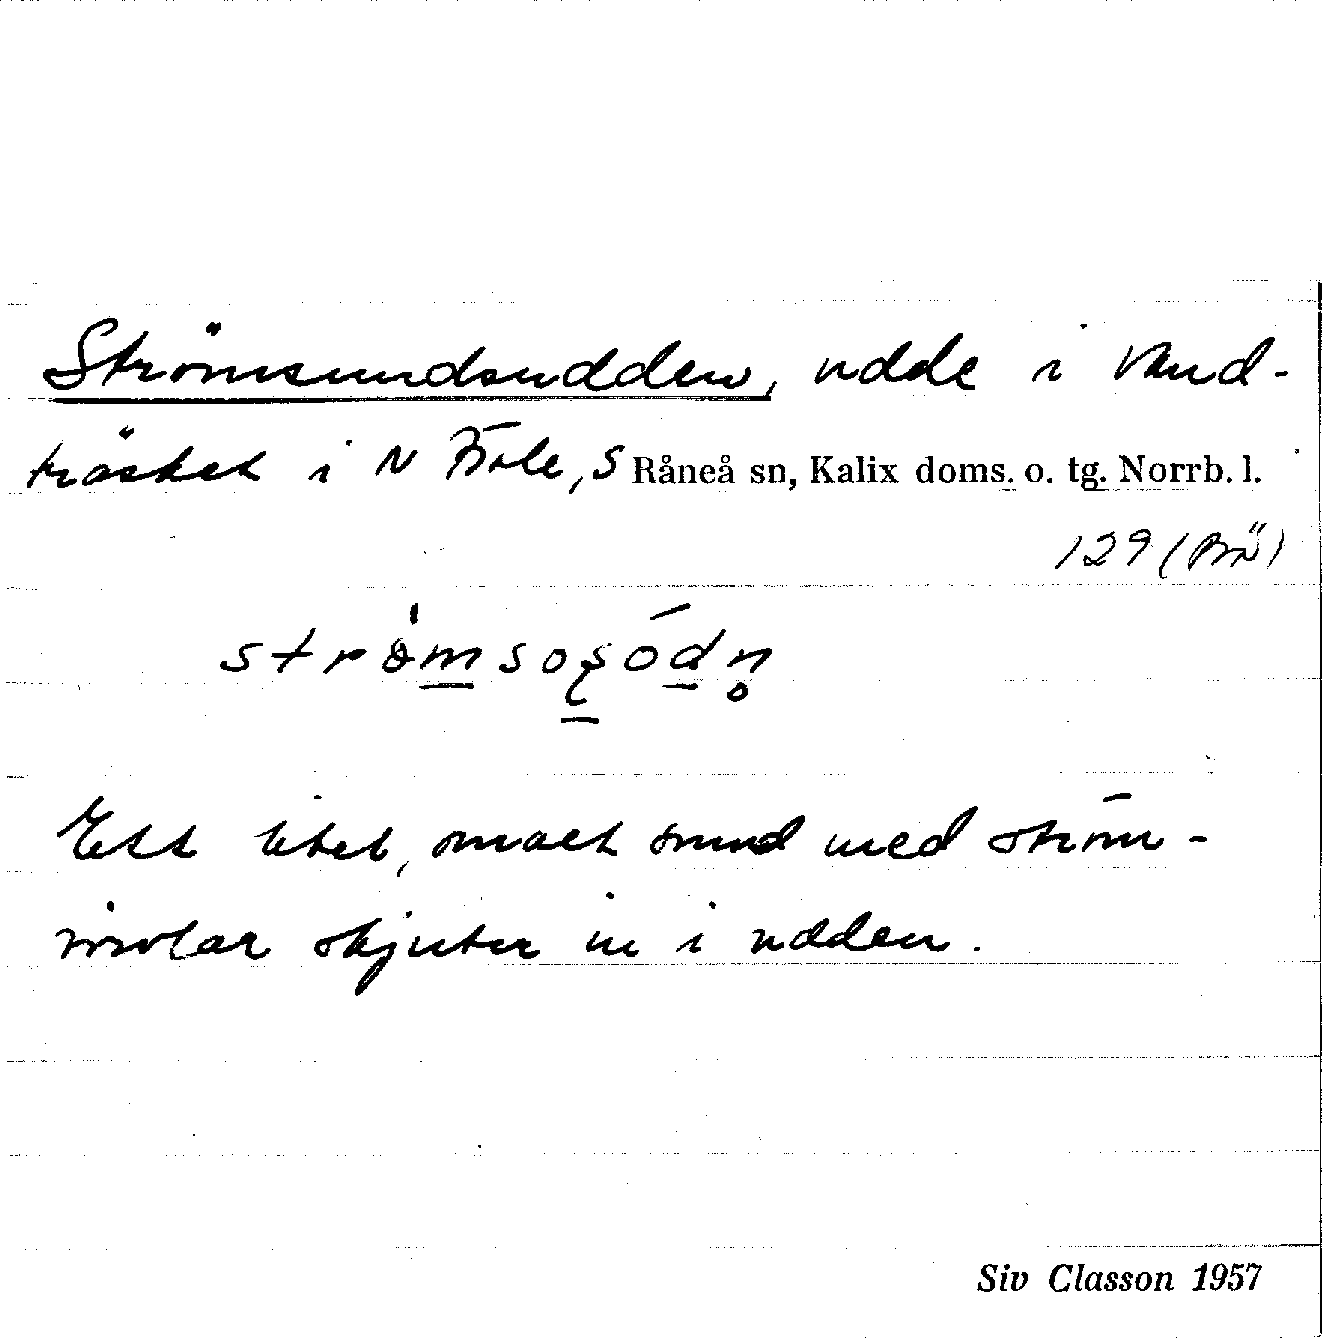 Strömsundsudden, udde i Vand-
träsket i N Bole, S Råneå sn, Kalix doms. o. tg. Norrb. l.
129 (Brä)
Ett litet, smalt sund med ström-
virvlar skjuter in i udden.
Siv Classon 1957